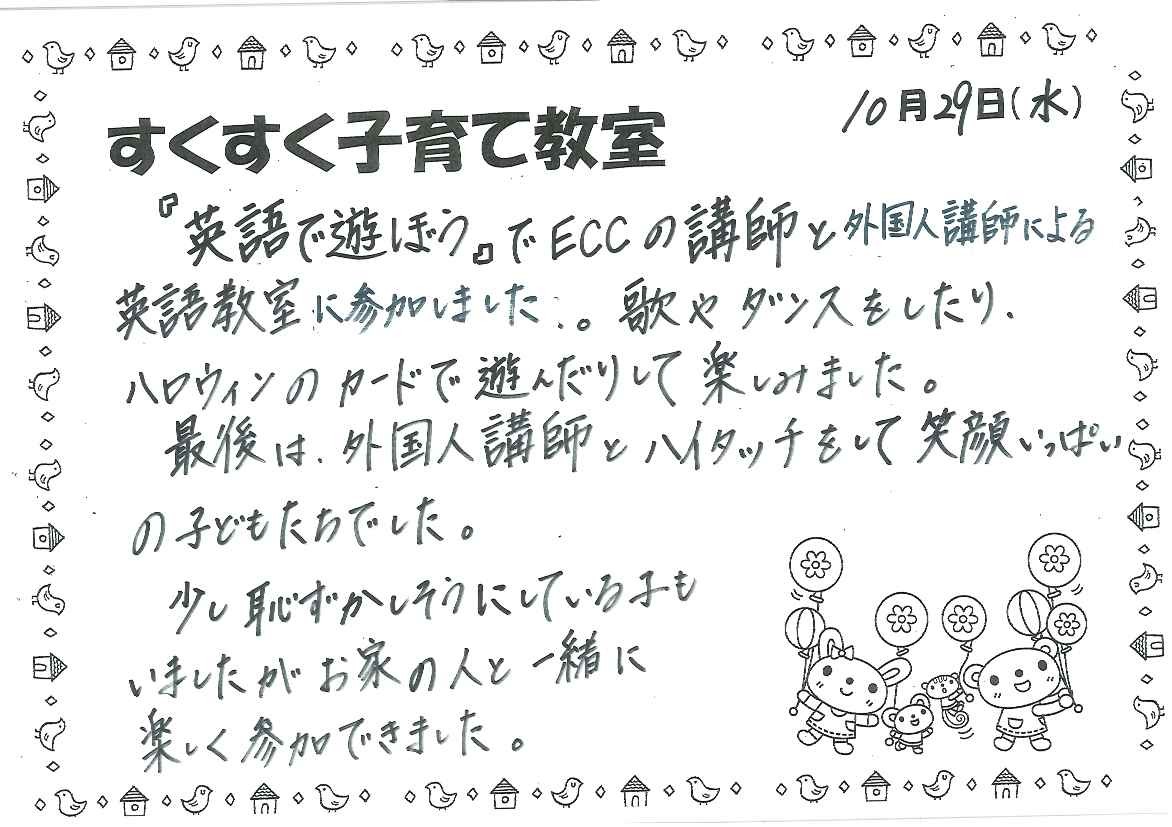 10月29日(水)
すくすく子育て教室
『英語で遊ぼう』でECCの講師と外国人講師による
英語教室に参加しました。歌やダンスをしたり、
ハロウィンのカードで遊んだりして楽しみました。
最後は、外国人講師とハイタッチをして笑顔いっぱい
の子どもたちでした。
少し恥ずかしそうにしている子も
いましたがお家の人と一緒に
楽しく参加できました。